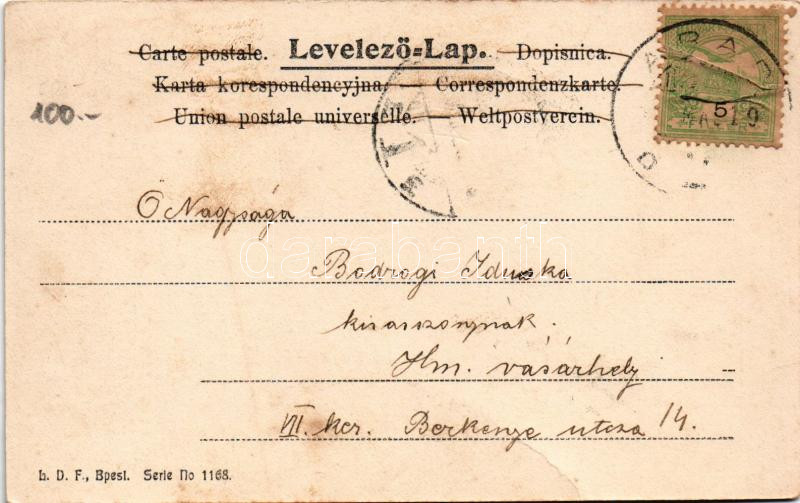 Carte postale. Levelező-Lap. Dopisnica.
Karta korespondencyjna. — Correspondenzkarte.
Union postale universelle. — Weltpostverein.
100.-
5
ARAD
Ő Nagysága
darabanth
Bodrogi Iduska
kisasszonynak.
Hm. vásárhely
VII. ker. Berkenye utcza 14.
L. D. F., Bpest. Serie No 1168.